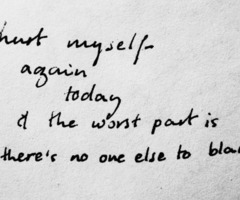 hurt myself-
again
today
& the worst part is
there's no one else to bla